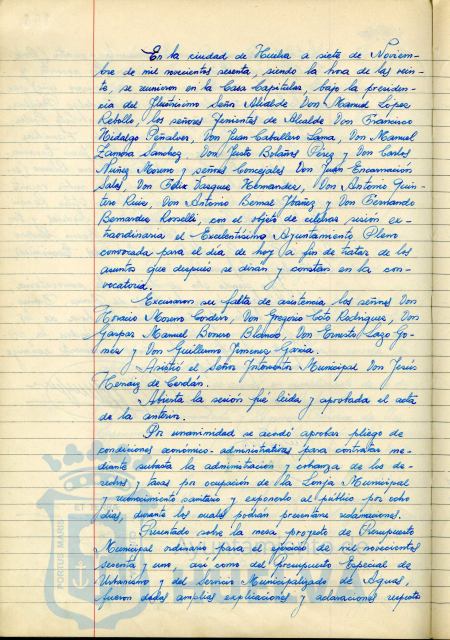 En la ciudad de Huelva a siete de Noviem-
bre de mil novecientos sesenta, siendo la hora de las vein-
te, se reunieron en la Casa Capitular, bajo la presiden-
cia del Ilustrísimo Señor Alcalde Don Manuel López
Rebollo, los señores Tenientes de Alcalde Don Francisco
Hidalgo Peñalver, Don Juan Caballero Lama, Don Manuel
Zamora Sanchez, Don Justo Bolaños Pérez y Don Carlos
Nuñez Moreno y señores Concejales Don Juan Encarnación
Salas, Don Felix Vazquez Hernandez, Don Antonio Quin-
tero Ruiz, Don Antonio Bernal Ybañez y Don Fernando
Bernardez Rosselli, con el objeto de celebrar sesión ex-
traordinaria el Excelentísimo Ayuntamiento Pleno
convocada para el día de hoy a fin de tratar de los
asuntos que después se dirán y constan en la con-
vocatoria.
Excusaron su falta de asistencia los señores Don
Horacio Moreno Cordón, Don Gregorio Coto Rodriguez, Don
Gaspar Manuel Bonero Blanco, Don Ernesto Lazo Go-
mez y Don Guillermo Jimenez Garcia.
Asistió el Señor Interventor Municipal Don Jesús
de Cerdán.
Abierta la sesión fué leida y aprobada el acta
de la anterior.
Por unanimidad se acordó aprobar pliego de
condiciones económico-administrativas para contratar me-
diante subasta la administración y cobranza de los de-
rechos y tasas por ocupación de la Lonja Municipal
y reconocimiento sanitario y exponerlo al público por ocho
días, durante los cuales podrán presentarse reclamaciones.
Presentado sobre la mesa proyecto de Presupuesto
Municipal ordinario para el ejercicio de mil novecientos
sesenta y uno, así como del Presupuesto Especial de
Urbanismo y del Servicio Municipalizado de Aguas,
fueron dadas amplias explicaciones y aclaraciones respecto
PORTUS MARIS